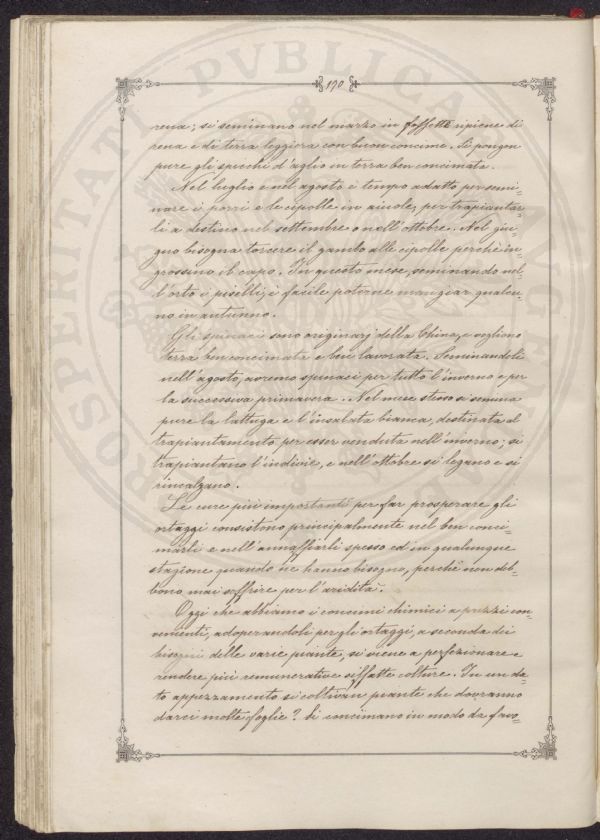 190
rena; si seminano nel marzo in fossette ripiene di
rena e di terra leggiera con buon concime. Si pongon
pure gli spicchi d'aglio in terra ben concimata.
Nel luglio e nel agosto è tempo adatto per semi-
nare i porri e le cipolle in aiuole, per trapiantar-
li a destino nel settembre o nell'ottobre. Nel giu-
gno bisogna torcere il gambo alle cipolle perchè in-
grossino il capo. In questo mese, seminando nel-
l'orto i piselli, è facile poterne mangiar qualcu-
no in autunno.
Gli spinaci sono originarj della China, e vogliono
terra ben concimata e ben lavorata. Seminandoli
nell'agosto, avremo spinaci per tutto l'inverno e per
la successiva primavera. Nel mese stesso si semina
pure la lattuga e l'insalata bianca, destinata al
trapiantamento per esser venduta nell'inverno; si
trapiantano l'indivie, e nell'ottobre si legano e si
rincalzano.
Le cure più importanti per far prosperare gli
ortaggi consistono principalmente nel ben conci-
marli e nell'annaffiarli spesso ed in qualunque
stagione quando ne hanno bisogno, perchè non deb-
bono mai soffrire per l'aridità.
Oggi che abbiamo i concimi chimici a prezzi con-
venienti, adoperandoli per gli ortaggi, a seconda dei
bisogni delle varie piante, si viene a perfezionare e
rendere più remunerative siffatte colture. In un da-
to appezzamento si coltivan piante che dovranno
darci molte foglie? Si concimano in modo da favo-
PROSPERITATI PVBLICAE AVGENDAE